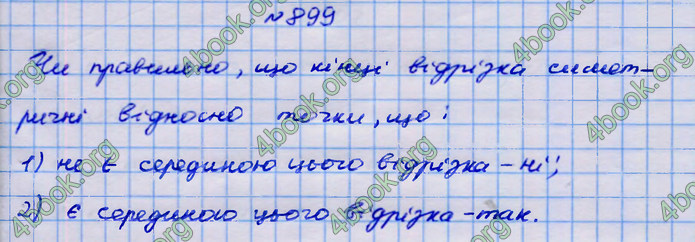 № 899
Чи правильно, що кінці відрізка симет-
ричні відносно точки, що:
1) не є серединою цього відрізка - ні;
2) є серединою цього відрізка - так.
4book.org 4book.org 4book.org 4book.org